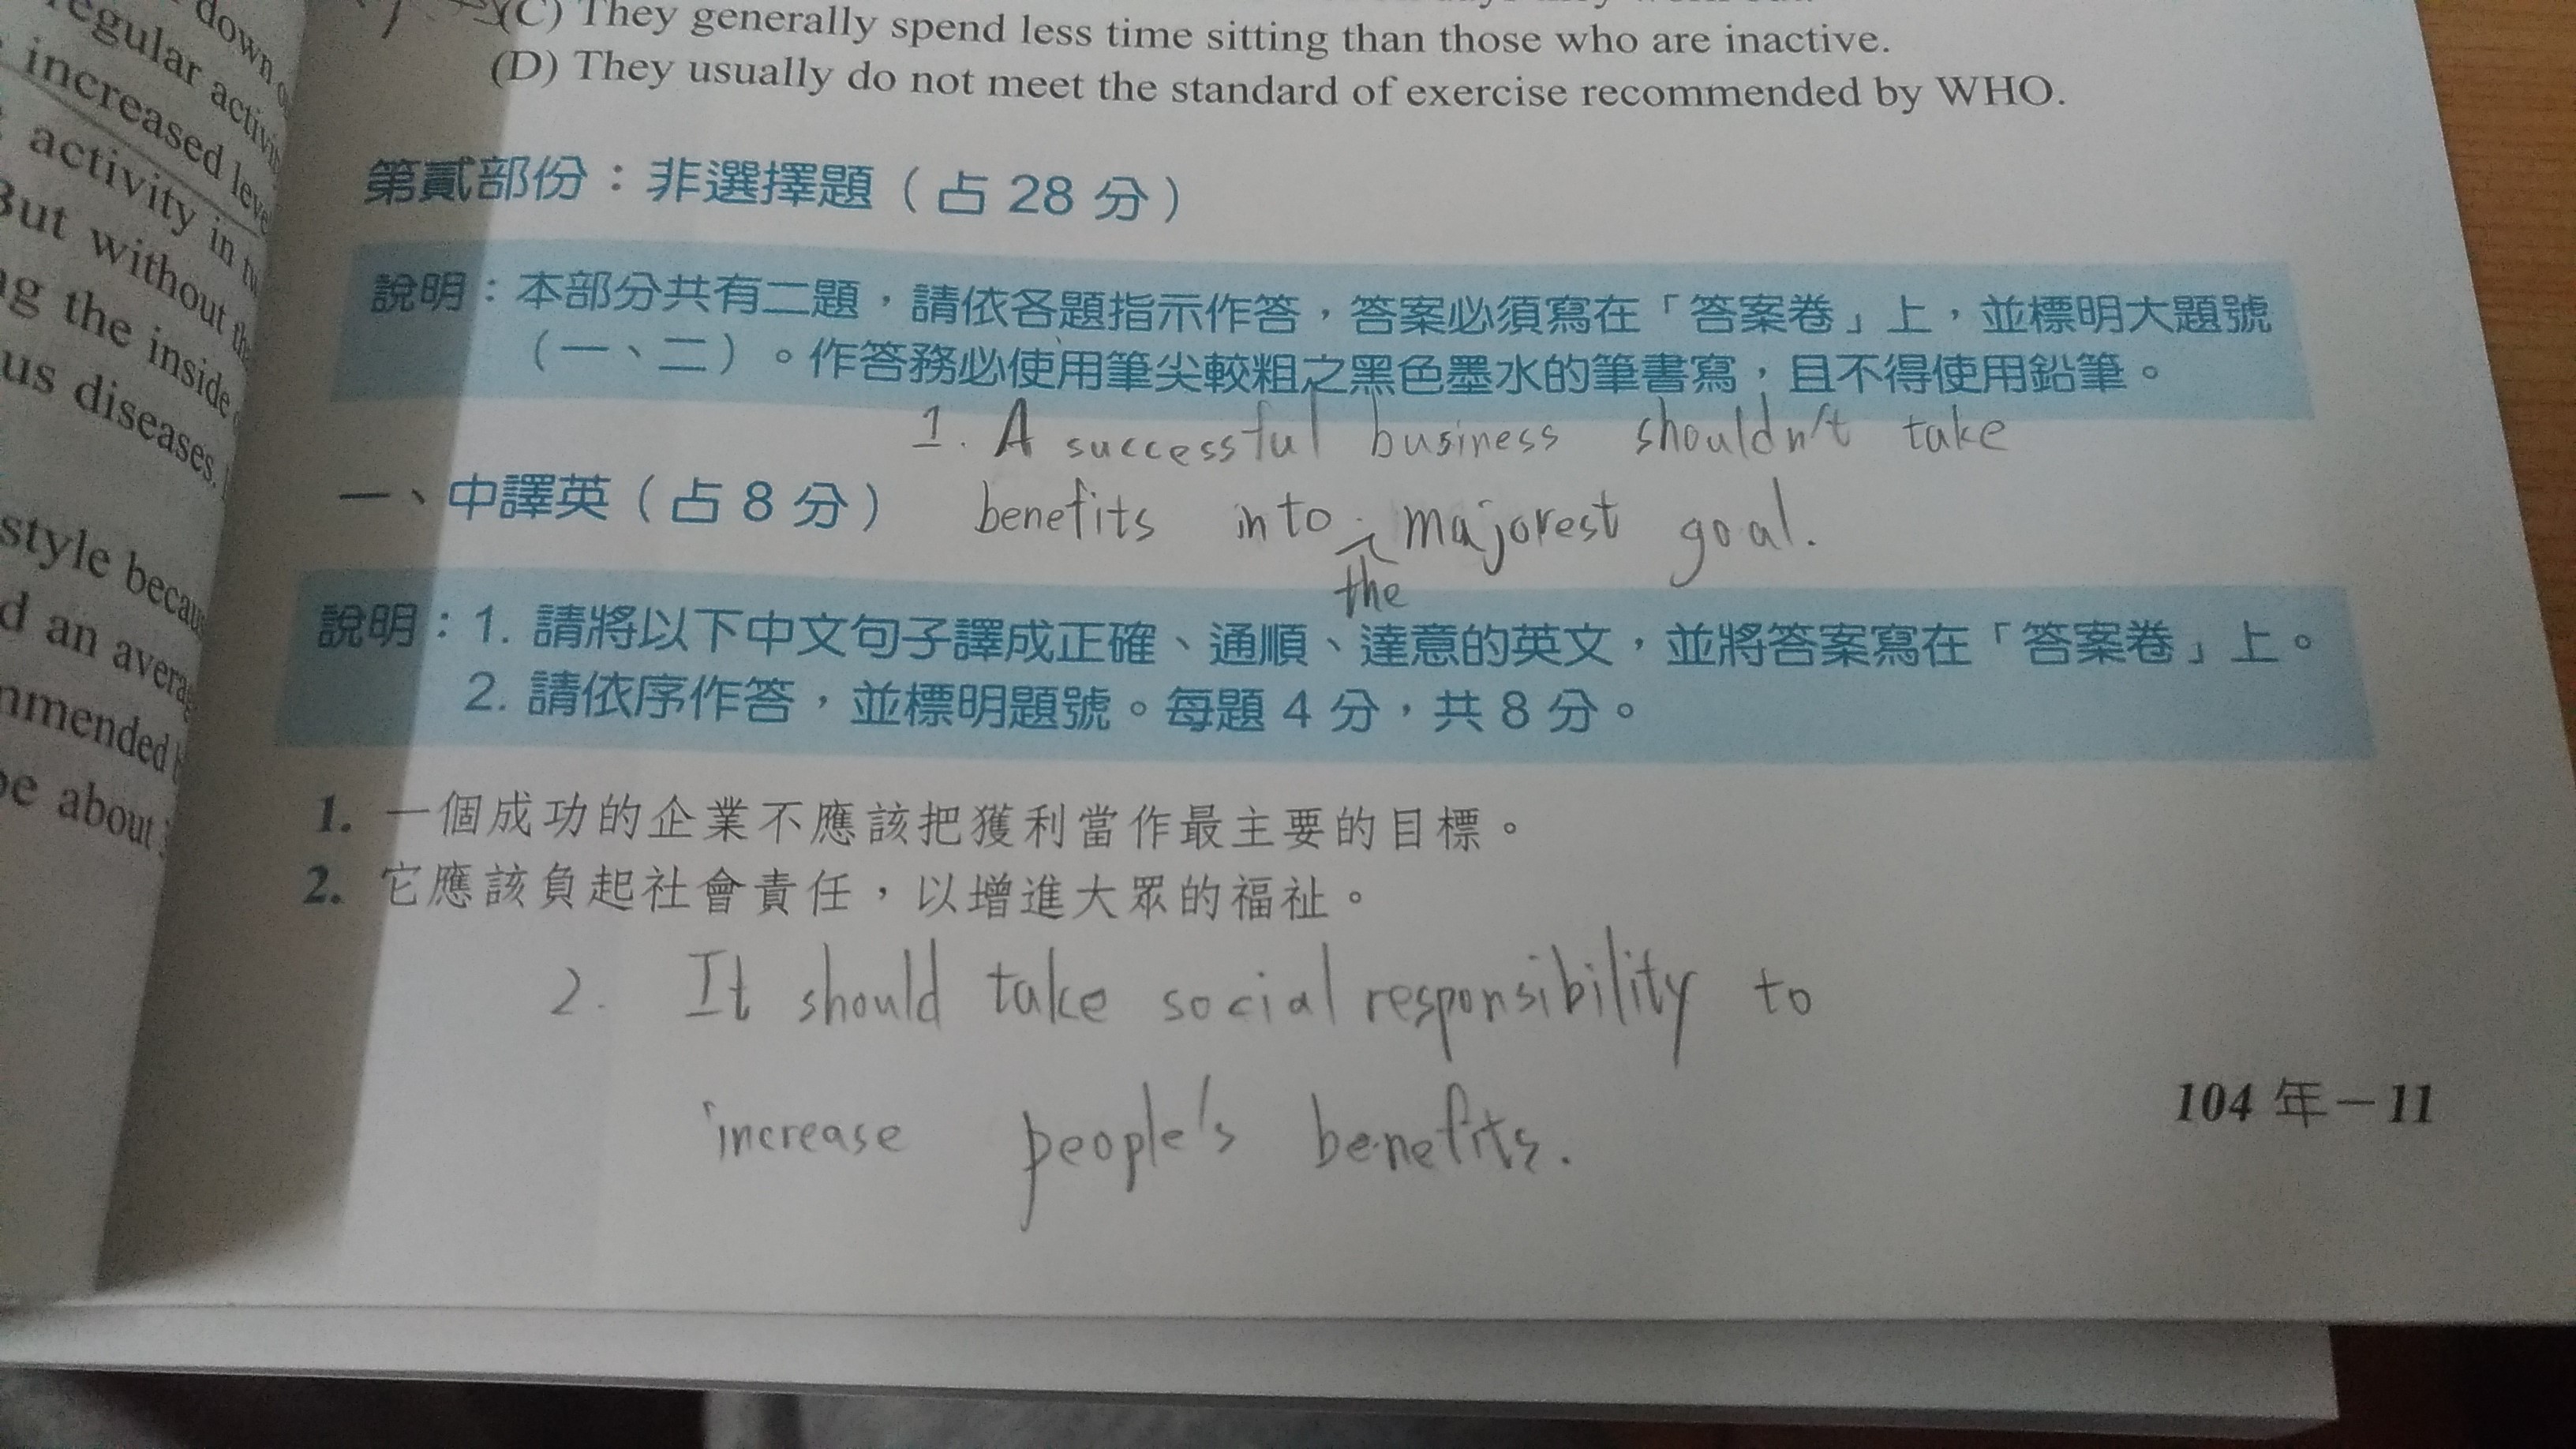 down
regular
increased
activity in
But without
the inside
us diseases.
style
d an
be about
(C) They generally spend less time sitting than those who are inactive.
(D) They usually do not meet the standard of exercise recommended by WHO.
第貳部份：非選擇題（占 28 分）
說明：本部分共有二題，請依各題指示作答，答案必須寫在「答案卷」上，並標明大題號
（一、二）。作答務必使用筆尖較粗之黑色墨水的筆書寫，且不得使用鉛筆。
1. A successful business shouldn't take
一、中譯英（占 8 分）
benefits into the majorest goal.
說明：1. 請將以下中文句子譯成正確、通順、達意的英文，並將答案寫在「答案卷」上。
2. 請依序作答，並標明題號。每題 4 分，共 8 分。
1. 一個成功的企業不應該把獲利當作最主要的目標。
2. 它應該負起社會責任，以增進大眾的福祉。
2. It should take social responsibility to
increase people's benefits.
104 年－11